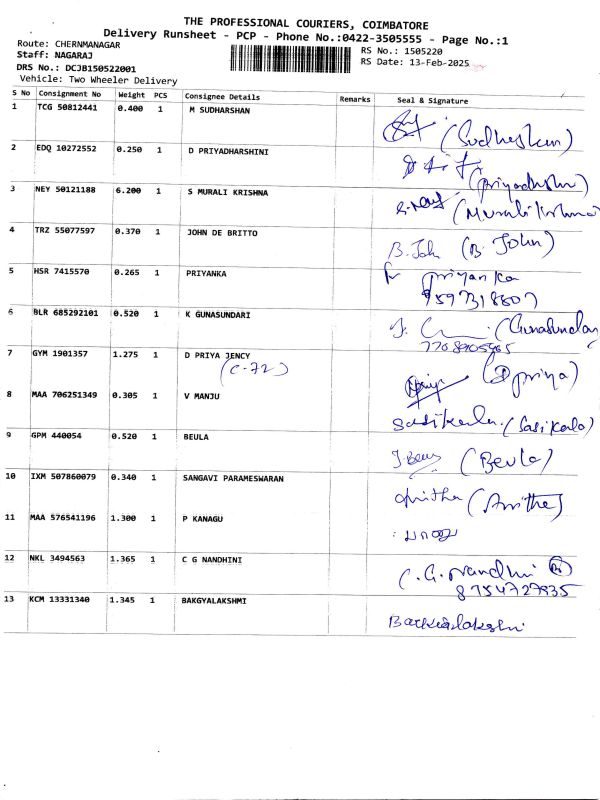 THE PROFESSIONAL COURIERS, COIMBATORE
Delivery Runsheet - PCP - Phone No.:0422-3505555 - Page No.:1
Route: CHERNMANAGAR
Staff: NAGARAJ
DRS No.: DCJB150522001
Vehicle: Two Wheeler Delivery
RS No.: 1505220
RS Date: 13-Feb-2025
S No Consignment No Weight PCS Consignee Details Remarks Seal & Signature
1 TCG 50812441 0.400 1 M SUDHARSHAN (Sudharshan)
2 EDQ 10272552 0.250 1 D PRIYADHARSHINI
3 NEY 50121188 6.200 1 S MURALI KRISHNA (Murali Krishna)
4 TRZ 55077597 0.370 1 JOHN DE BRITTO B. Joh (B. John)
5 HSR 7415570 0.265 1 PRIYANKA priyanka
6 BLR 685292101 0.520 1 K GUNASUNDARI
7 GYM 1901357 1.275 1 D PRIYA JENCY
(C-72)
8 MAA 706251349 0.305 1 V MANJU Sasikala. (Sasikala)
9 GPM 440054 0.520 1 BEULA (Beula)
10 IXM 507860079 0.340 1 SANGAVI PARAMESWARAN
11 MAA 576541196 1.300 1 P KANAGU
12 NKL 3494563 1.365 1 C G NANDHINI C. G. Nandhini
8754727935
13 KCM 13331340 1.345 1 BAKGYALAKSHMI